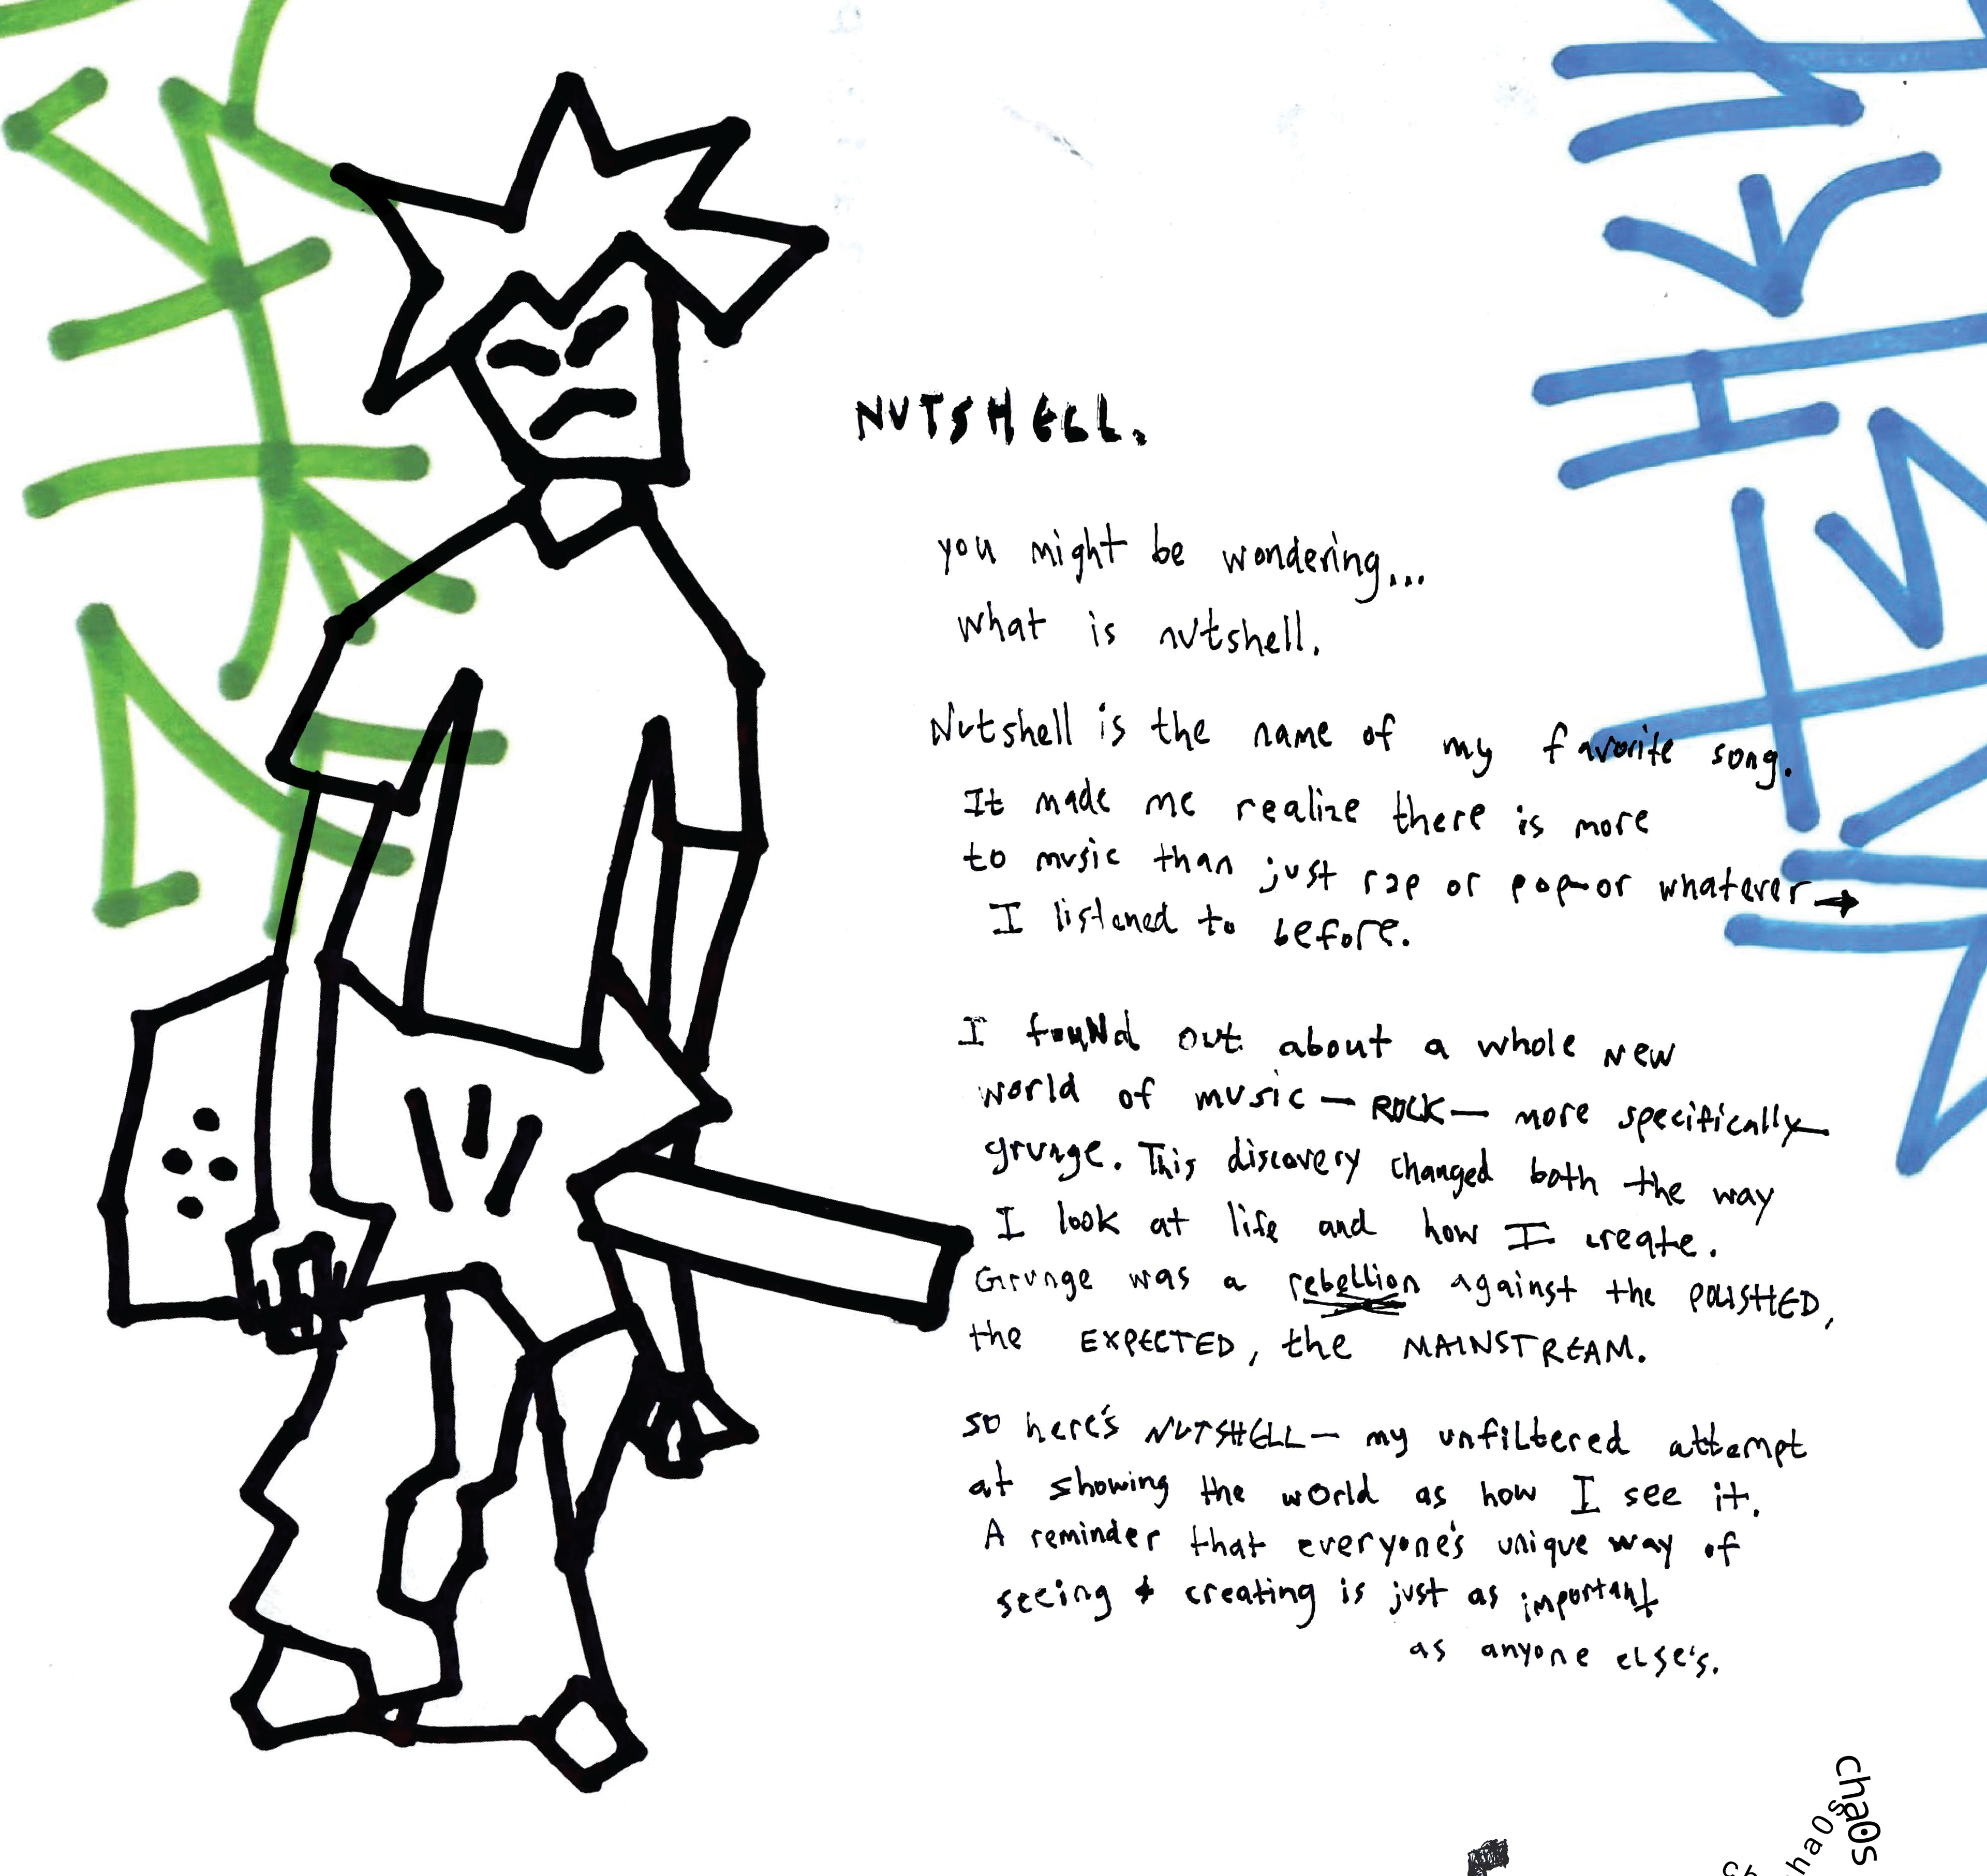 NUTSHELL.
you might be wondering...
what is nutshell.
Nutshell is the name of my favorite song.
It made me realize there is more
to music than just rap or pop or whatever →
I listened to before.
I found out about a whole new
world of music — ROCK — more specifically
grunge. This discovery changed both the way
I look at life and how I create.
Grunge was a rebellion against the POLISHED,
the EXPECTED, the MAINSTREAM.
so here's NUTSHELL — my unfiltered attempt
at showing the world as how I see it.
A reminder that everyone's unique way of
seeing & creating is just as important
as anyone else's.
cha0s